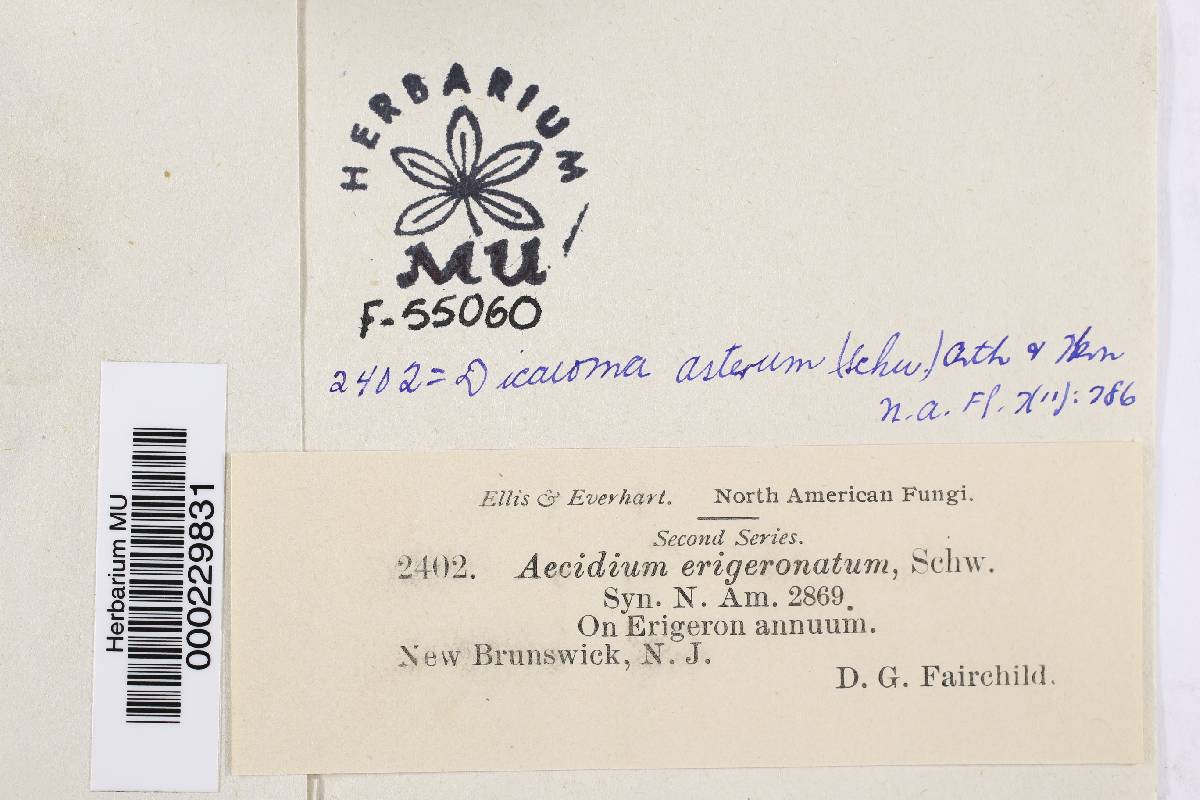 HERBARIUM
MU
F-55060
2402 = Dicaeoma asterum (Schw.) Arth & Kern
N.A. Fl. 7(11): 786
Herbarium MU
000229831
Ellis & Everhart. North American Fungi.
Second Series.
2402. Aecidium erigeronatum, Schw.
Syn. N. Am. 2869.
On Erigeron annuum.
New Brunswick, N. J.
D. G. Fairchild.